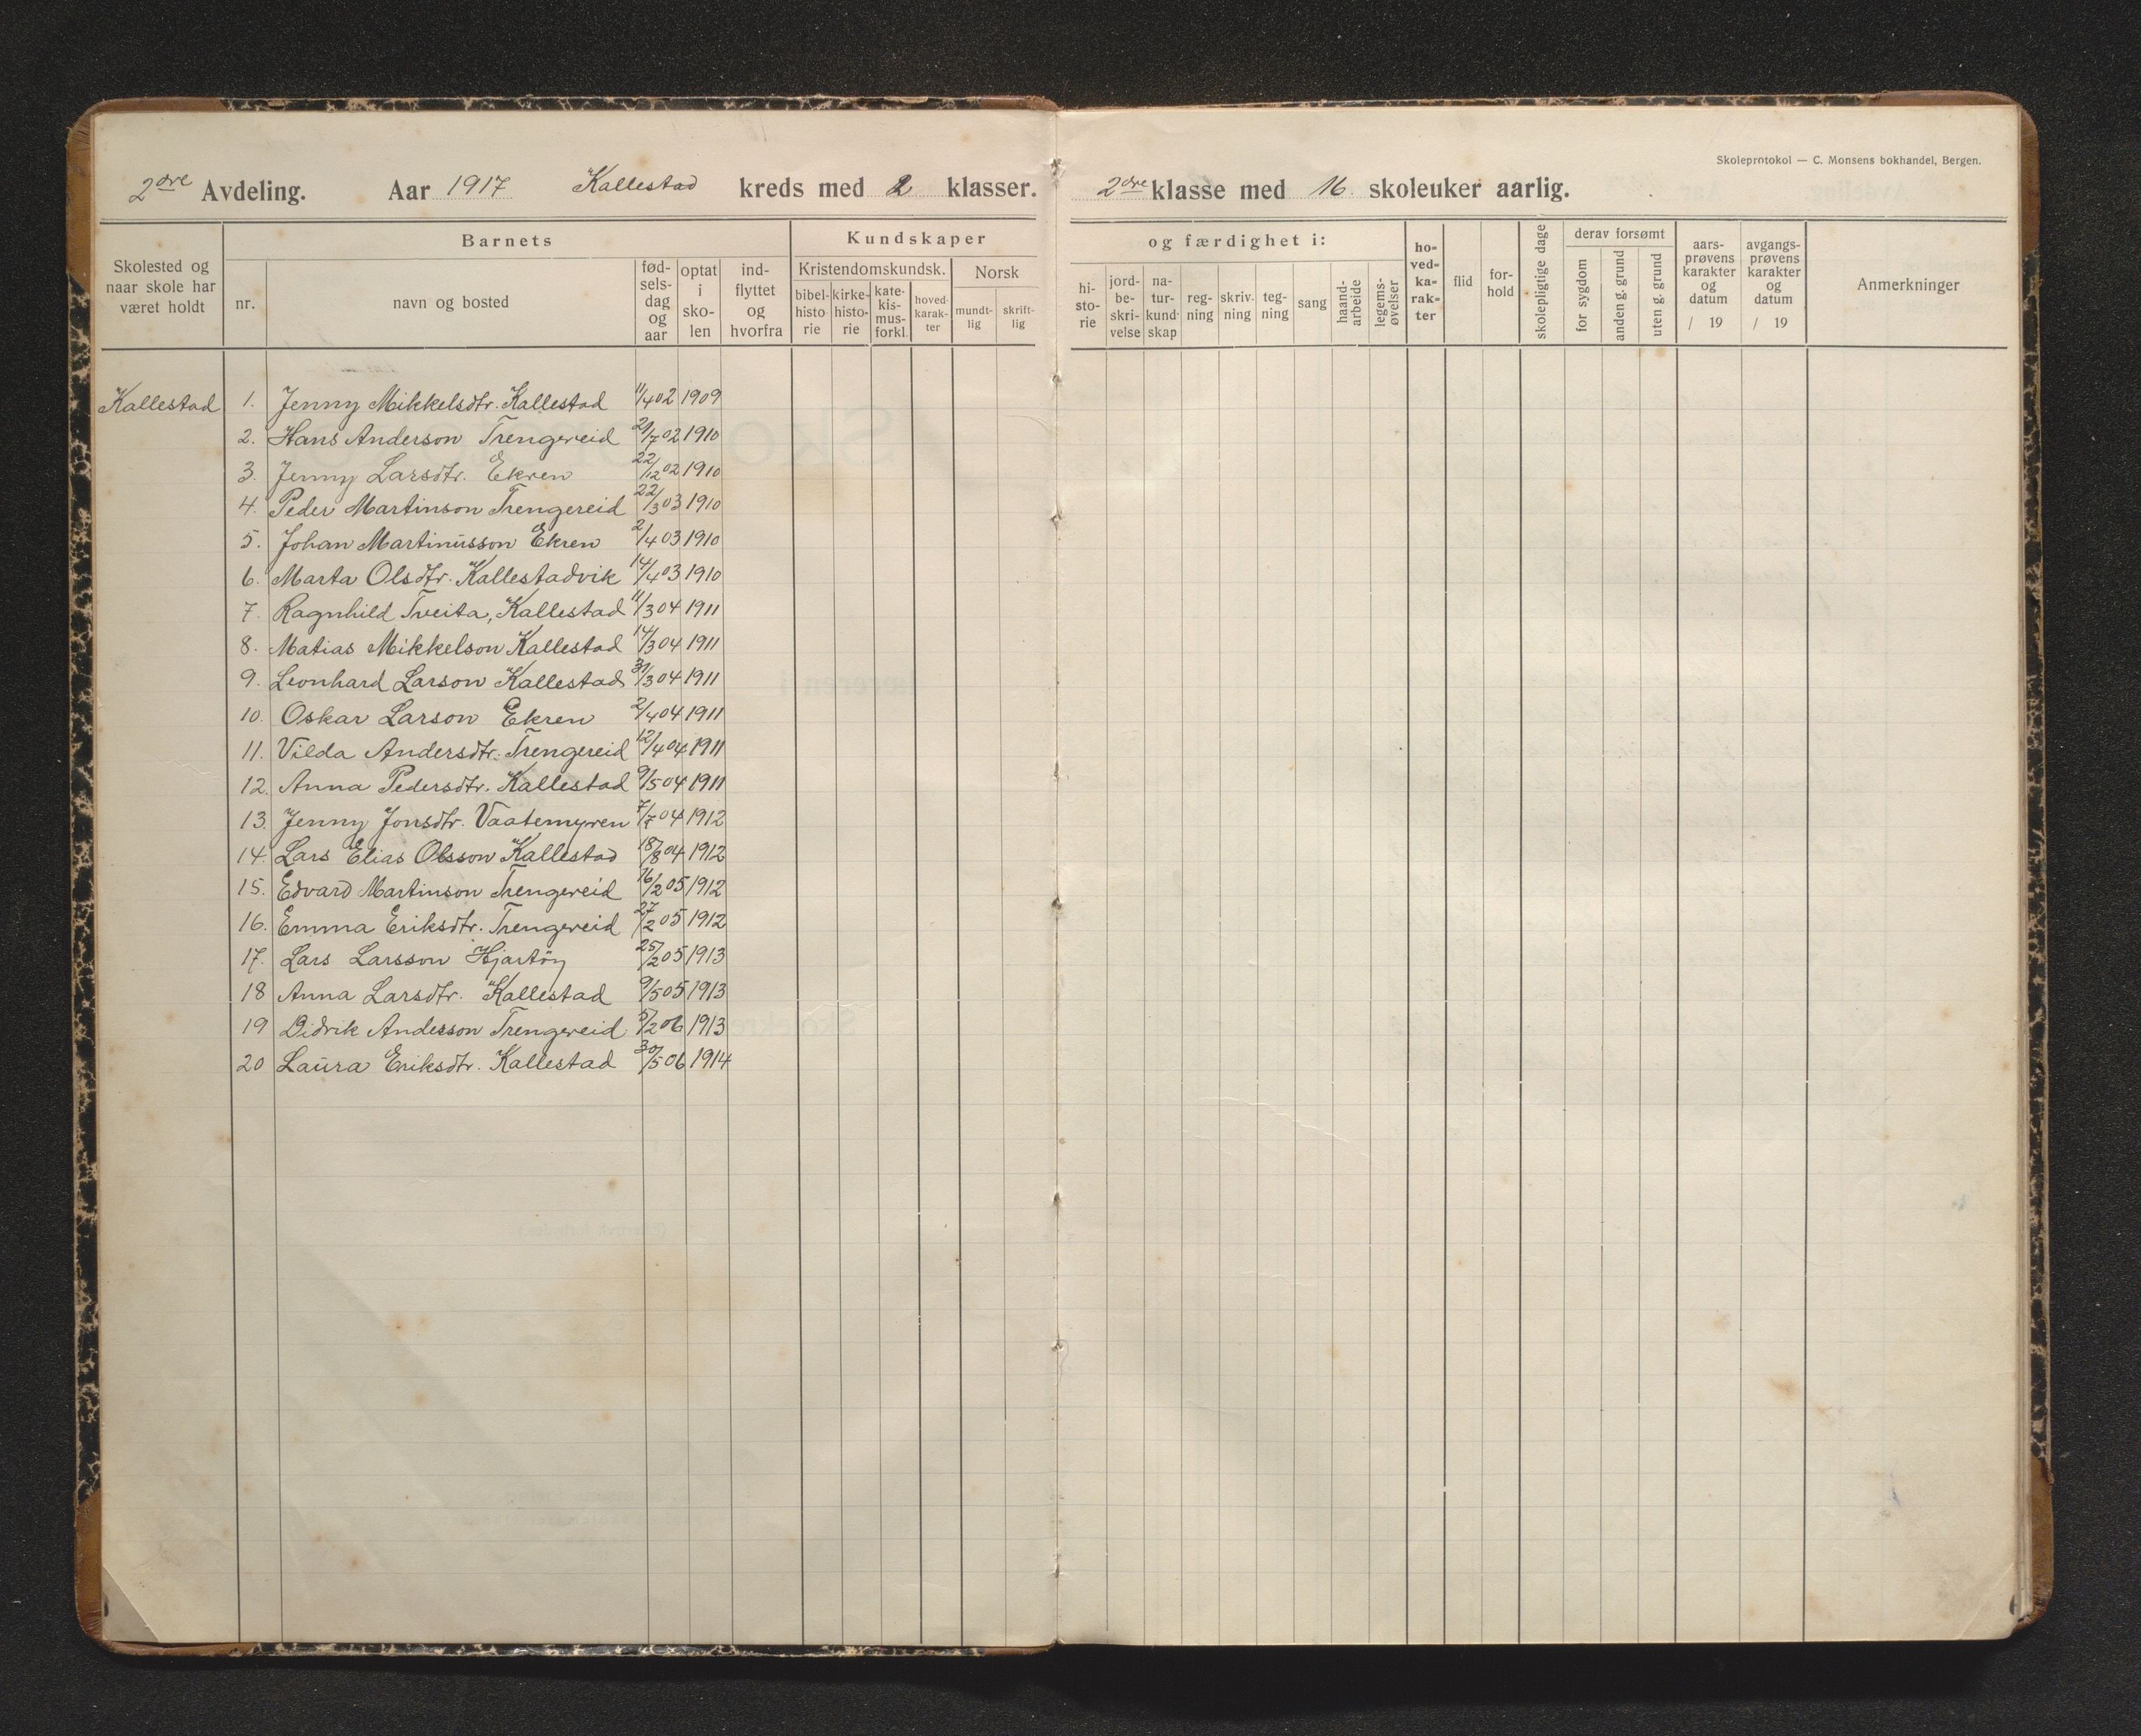 Skoleprotokol — C. Monsens bokhandel, Bergen.
2dre Avdeling. Aar 1917 Kallestad kreds med 2 klasser. 2dre klasse med 16 skoleuker aarlig.
Skolested og naar skole har været holdt
Barnets
nr.
navn og bosted
fød-sels-dag og aar
optat i sko-len
ind-flyttet og hvorfra
Kundskaper
Kristendomskundsk.
bibel-histo rie
kirke-histo-rie
kate-kis-mus-forkl.
hoved-karak-ter
Norsk
mundt-lig
skrift-lig
og færdighet i:
hi-sto-rie
jord-be-skri-velse
na-tur-kund-skap
reg-ning
skriv-ning
teg-ning
sang
hand-arbeide
legems-øvelser
ho-ved-ka-rak-ter
flid
for-hold
skolepligtige dage
derav forsømt
for sygdom
anden g. grund
uten g. grund
aars-prøvens karakter og datum / 19
avgangs-prøvens karakter og datum / 19
Anmerkninger
Kallestad 1. Jenny Mikkelsdtr. Kallestad 11/4 02 1909
2. Hans Anderson Trengereid 21/7 02 1910
3. Jenny Larsdtr. Ekren 22/12 02 1910
4. Peder Martinson Trengereid 22/3 03 1910
5. Johan Martinusson Ekren 2/4 03 1910
6. Marta Olsdtr. Kallestadvik 14/4 03 1910
7. Ragnhild Tveita, Kallestad 11/3 04 1911
8. Matias Mikkelson Kallestad 14/3 04 1911
9. Leonhard Larson Kallestad 31/3 04 1911
10. Oskar Larson Ekren 2/4 04 1911
11. Vilda Andersdtr. Trengereid 12/4 04 1911
12. Anna Pedersdtr. Kallestad 9/5 04 1911
13. Jenny Jonsdtr. Vaatemyren 7/7 04 1912
14. Lars Elias Olsson Kallestad 18/8 04 1912
15. Edvard Martinson Trengereid 16/2 05 1912
16. Emma Eriksdtr. Trengereid 27/2 05 1912
17. Lars Larsson Hjartöy 25/2 05 1913
18 Anna Larsdtr. Kallestad 9/5 05 1913
19 Didrik Andesson Trengereid 5/2 06 1913
20 Laura Eriksdtr. Kallestad 30/5 06 1914